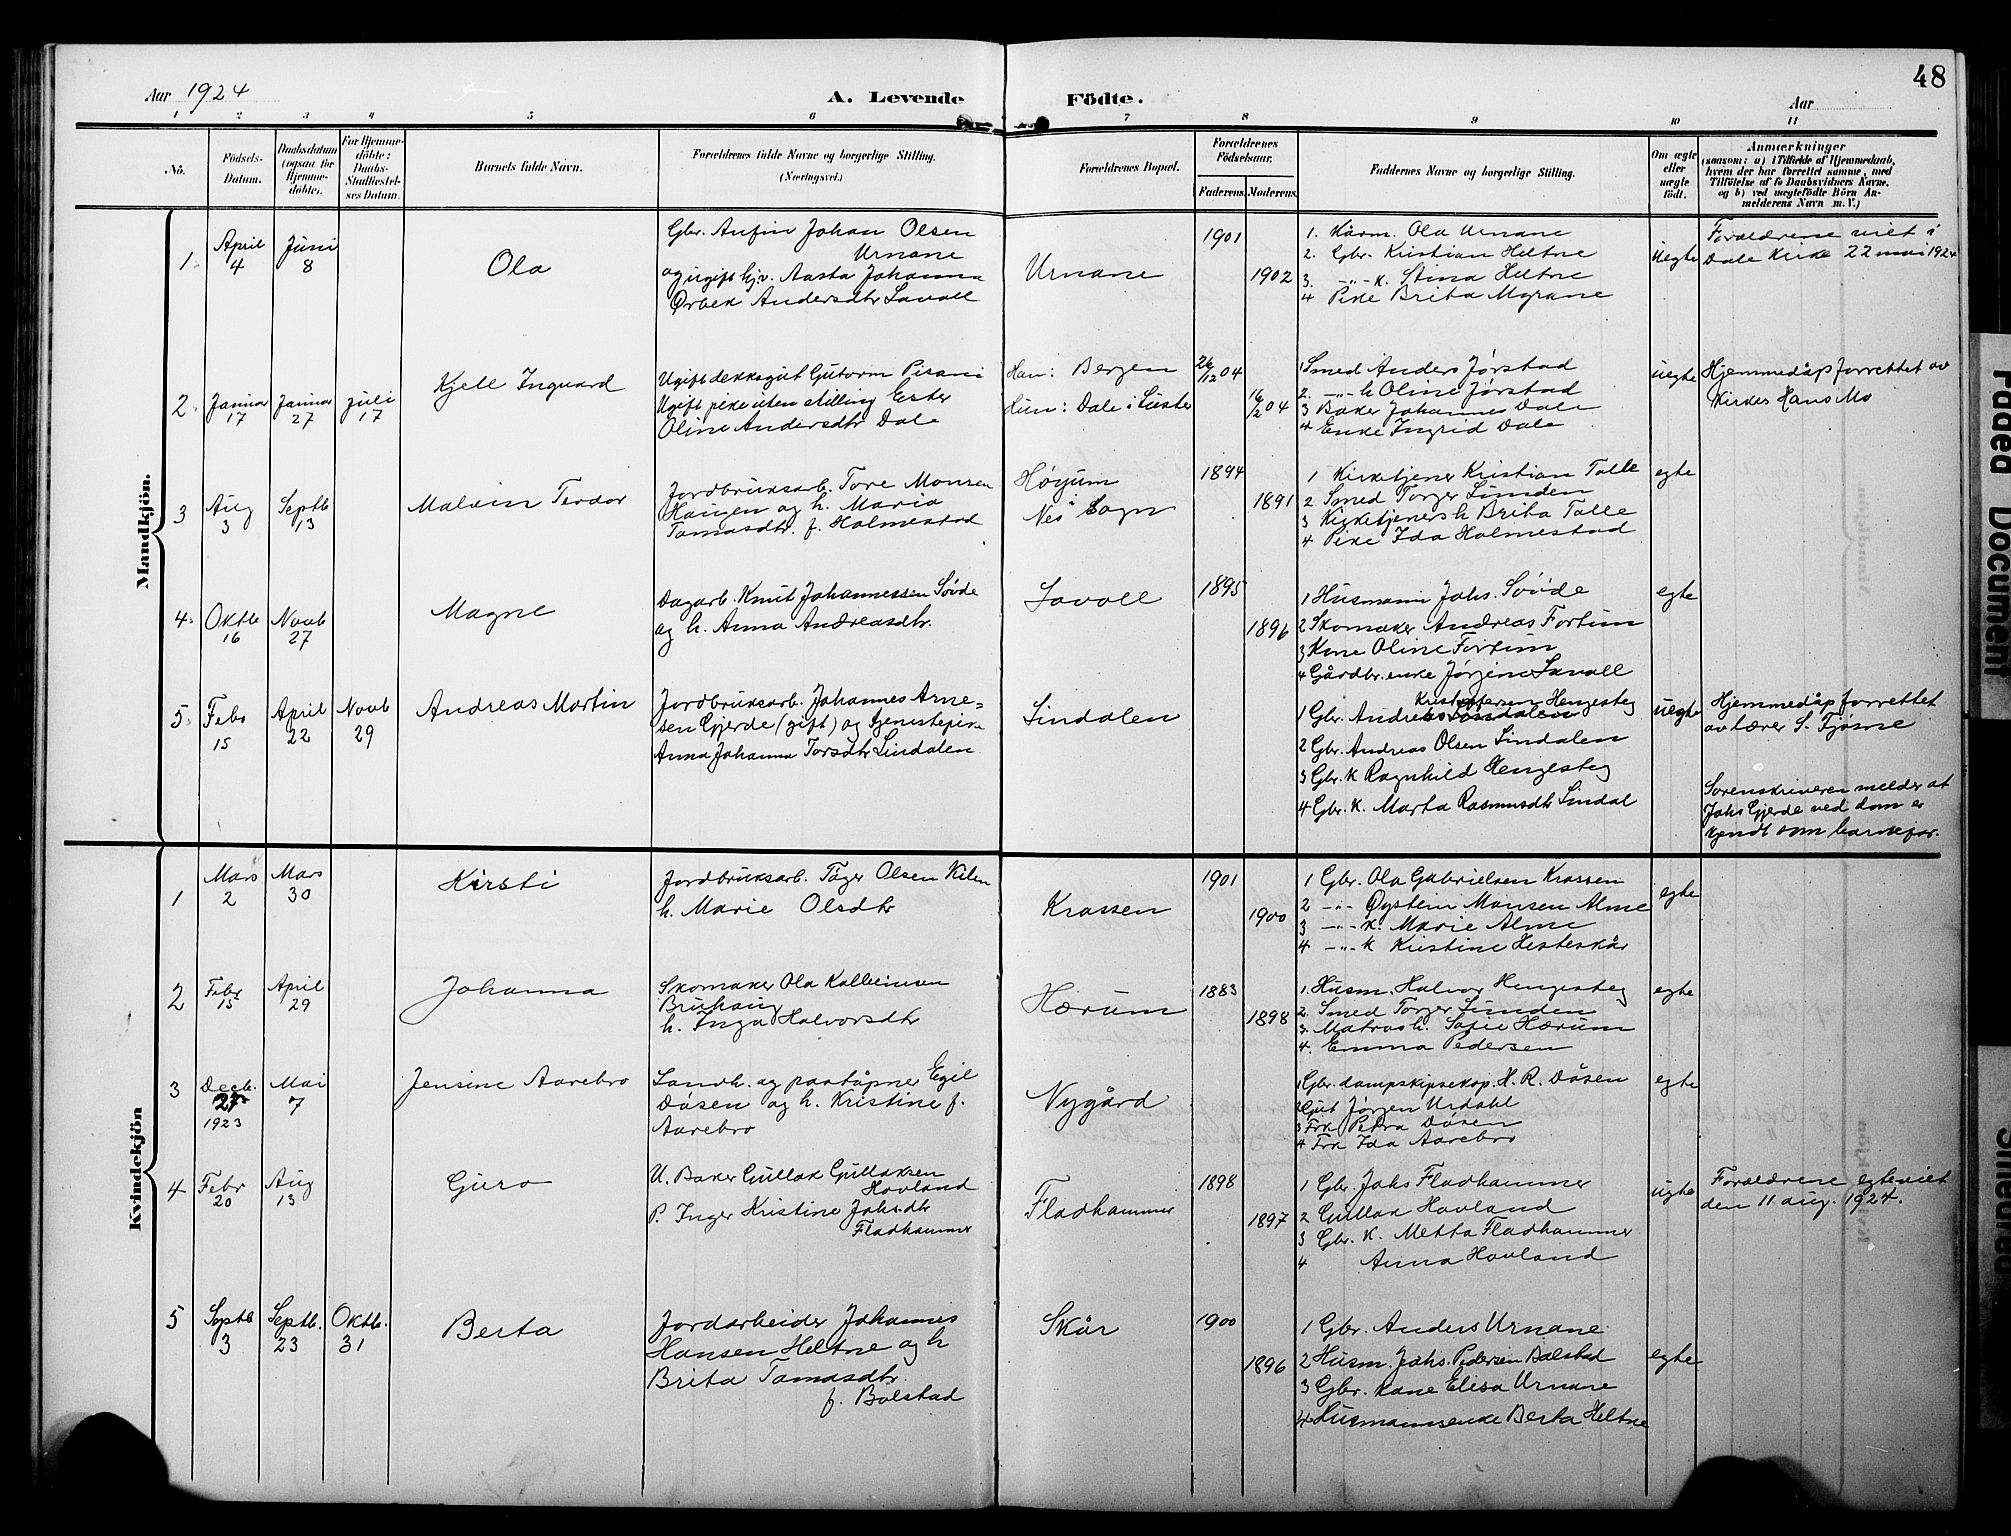 48
Aar 1924
A. Levende Födte.
Aar
1 2 3 4 5 6 7 8 9 10 11
No.
Födsels-
Datum.
Daabsdatum
(ogsaa for
Hjemme-
döbte).
For Hjemme-
döbte:
Daabs-
Stadfæstel-
ses Datum.
Barnets fulde Navn.
Forældrenes fulde Navne og borgerlige Stilling.
(Næringsvei.)
Forældrenes Bopæl.
Forældrenes
Födselsaar.
Faderens. Moderens.
Faddernes Navne og borgerlige Stilling.
Om ægte
eller
uægte
født.
Anmærkninger
(saasom: a) i Tilfælde af Hjemmedaab,
hvem der har forrettet samme, med
Tilföielse af to Daabsvidners Navne,
og b) ved uægtefödte Börn An-
melderens Navn m. V.)
Mandkjön.
1
April
4
Juni
8
Ola
Gbr. Anfin Johan Olsen
Urnane
og ugift hjv. Aasta Johanna
Ørbek Andersdtr Lavoll
Urnane
1901
1902
1. Kårm. Ola Urnane
2. Gbr. Kristian Heltne
3. -"- k. Stina Heltne
4 Pike Brita Myrane
uegte
Forældrene viet i
Dale Kirke 22 mai 1924
2
Januar
17
Januar
27
Juli
17
Kjell Ingvard
Ugift dekksgut Gutorm Pisani
Ugift pike uten stilling Ester
Oline Andersdtr Dale
Han: Bergen
Hun: Dale i Luster
26/12 04
16/2 04
1 Smed Anders Jørstad
2. -"- h Oline Jørstad
3 Baker Johannes Dale
4 Enke Ingrid Dale
uegte
Hjemmedåp forrettet av
Kirkes Hans Mo
3
Aug
3
Septb
13
Malvin Teodor
Jordbruksarb. Tore Monsen
Haugen og h. Maria
Tomasdtr. f. Holmestad
Høyum
Nes i Sogn
1894
1891
1 Kirketjener Kristian Talle
2 Smed Torger Linden
3 Kirketjeners h Brita Talle
4 Pike Ida Holmestad
egte
4
Oktb
16
Novb
27
Magne
Dagarb. Knut Johannessen Søvde
og h. Anna Andreasdtr.
Lavoll
1895
1896
1 Husmann Johs. Søvde
2 Skomaker Andreas Fortun
3 Kone Oline Fortun
4 Gårdbr. enke Jørgine Lavoll
egte
5
Febr
15
April
22
Novb
29
Andreas Martin
Jordbruksarb. Johannes Arne=
sen Gjerde (gift) og tjenestepike
Anna Johanna Torsdtr Lindalen
Lindalen
Kristoffersen Hengesteg
1 Gbr. Andreas Lindalen
2 Gbr. Andreas Olsen Lindalen
3 Gbr. k Ragnhild Hengesteg
4 Gbr. k. Marta Rasmusdtr Lindal
uegte
Hjemmedåp forrettet
av lærer S. Fjøsne
Sorenskriveren melder at
Johs Gjerde ved dom er
kjendt som barnefar.
Kvindekjön
1
Mars
2
Mars
30
Kirsti
Jordbruksarb. Tøger Olsen Kilen
h. Marie Olsdtr
Krossen
1901
1900
1 Gbr. Ola Gabrielsen Krossen
2 -"- Øystein Monsen Alme
3 -"- k. Marie Alme
4 -"- k Kristine Hesteskår
egte
2
Febr
15
April
29
Johanna
Skomaker Ola Kolbeinsen
Bruhaug
h. Inga Halvorsdtr
Hærum
1883
1898
1. Husm. Halvor Hengesteg
2. Smed Torger Linden
3. Matros h. Sofie Hærum
4. Emma Pedersen
egte
3
Decb.
27
1923
Mai
7
Jensine Aarebro
Landh. og poståpner Egil
Døsen og h. Kristine f.
Aarebro
Nygård
1 Gbr. dampskipsekxp. H. R. Døsen
2 Gut Jørgen Urdahl
3 Frk Petra Døsen
4 Frk Ida Aarebro
egte
4
Febr
20
Aug
13
Guro
U. Baker Gullak Gullaksen
Hovland
P. Inger Kristine Johsdtr
Fladhammer
Fladhammer
1898
1897
1 Gbr. Johs Fladhammer
2 Gullak Hovland
3 Gbr. k. Metta Fladhammer
4 Anna Hovland
ugte
Forældrene egteviet
den 11 aug. 1924.
5
Septb
3
Septb.
23
Oktb.
31
Berta
Jordarbeider Johannes
Hansen Heltne og h
Brita Tomasdtr.
f. Bolstad
Skår
1900
1896
1 Gbr. Anders Urnane
2 Husm. Johs. Pedersen Bolstad
3 Gbr. kone Elisa Urnane
4 Husmannsenke Berta Heltne
egte
Faded Document